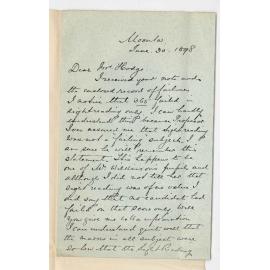 Moonta
June 30. 1898
Dear Mrs Hodge.
I received your note and
the enclosed record of failures
I notice that 265 failed in
sight reading only. I can hardly
understand this because Professor
Ives assured me that sight reading
was not a failing subject. I
am sure he will remember this
statement. This happens to be
one of Mr pupils and
although I did not tell her that
sight reading was of no value I
did say that no candidate had
failed on that score only. Will
you give me information
I can understand quite well that
the marks in all subjects were
so low that the Sight Reading